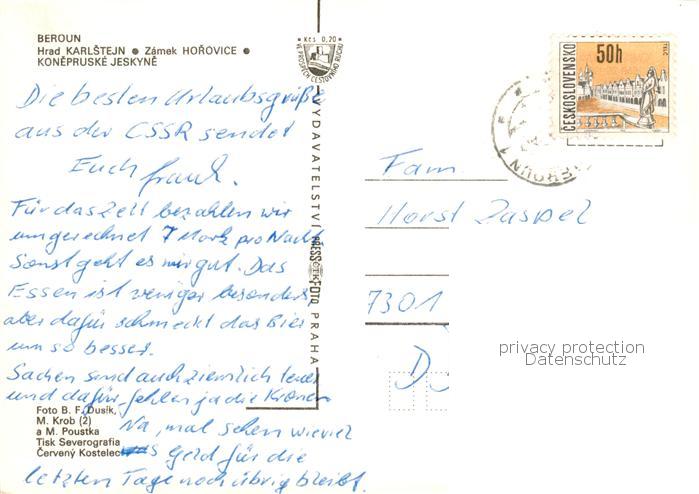 BEROUN
Hrad KARLŠTEJN ● Zámek HOŘOVICE ●
KONĚPRUSKÉ JESKYNĚ
Die besten Urlaubsgrüße
aus der CSSR sendet
Euch Frank.
Für das Zelt bezahlen wir
umgerechnet 7 Mark pro Nacht
Sonst geht es mir gut. Das
Essen ist weniger besonders,
aber dafür schmeckt das Bier
um so besser.
Sachen sind auch ziemlich teuer
und dafür fehlen ja die Kronen
Na, mal sehen wieviel
Geld für die
letzten Tage noch übrig bleibt.
Foto B. F. Dusík,
M. Krob (2)
a M. Poustka
Tisk Severografia
Červený Kostelec
Kčs 0,20
VE PROSPĚCH CESTOVNÍHO RUCHU
VYDAVATELSTVÍ PRESSFOTO PRAHA
ČESKOSLOVENSKO
50h
TELČ
BEROUN 1
Fam.
Horst Zaspel
7301
privacy protection
Datenschutz